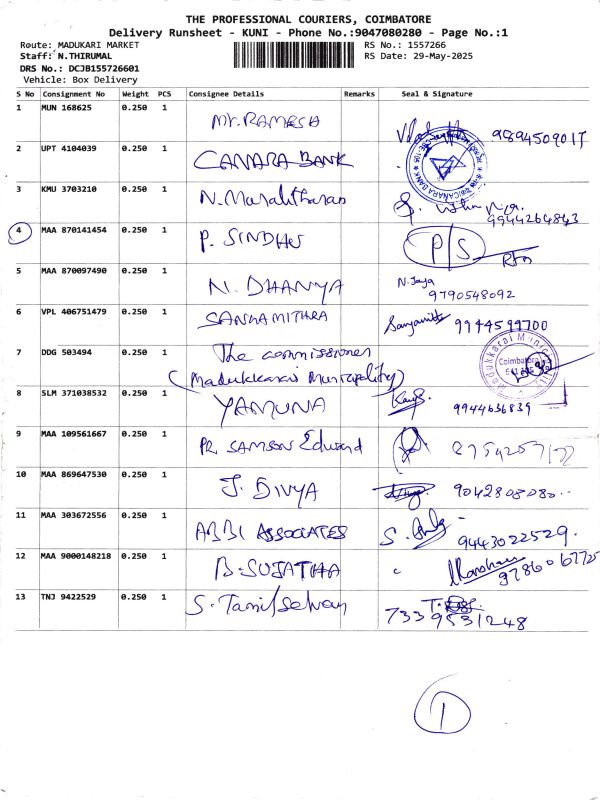 THE PROFESSIONAL COURIERS, COIMBATORE
Delivery Runsheet - KUNI - Phone No.:9047080280 - Page No.:1
Route: MADUKARI MARKET
RS No.: 1557266
Staff: N.THIRUMAL
RS Date: 29-May-2025
DRS No.: DCJB155726601
Vehicle: Box Delivery
S No Consignment No Weight PCS Consignee Details Remarks Seal & Signature
1 MUN 168625 0.250 1 Mr. RAMESH 9894509017
2 UPT 4104039 0.250 1 CANARA BANK
3 KMU 3703210 0.250 1 N. Muralitharan 9944264843
4 MAA 870141454 0.250 1 P. SINDHU P/S
5 MAA 870097490 0.250 1 N. DHANYA N. Jaya
9790548092
6 VPL 406751479 0.250 1 SANGAMITHRA 9944599700
7 DDG 503494 0.250 1 The commissioner
(Madukkarai Municipality) Coimbatore
8 SLM 371038532 0.250 1 YAMUNA 9944636839
9 MAA 109561667 0.250 1 PR. SAMSON Edward
10 MAA 869647530 0.250 1 J. DIVYA 9042808080
11 MAA 303672556 0.250 1 ABBI ASSOCIATES 9443022529
12 MAA 9000148218 0.250 1 B. SUJATHA 9786067725
13 TNJ 9422529 0.250 1 S. Tamilselvan
7339531248
1